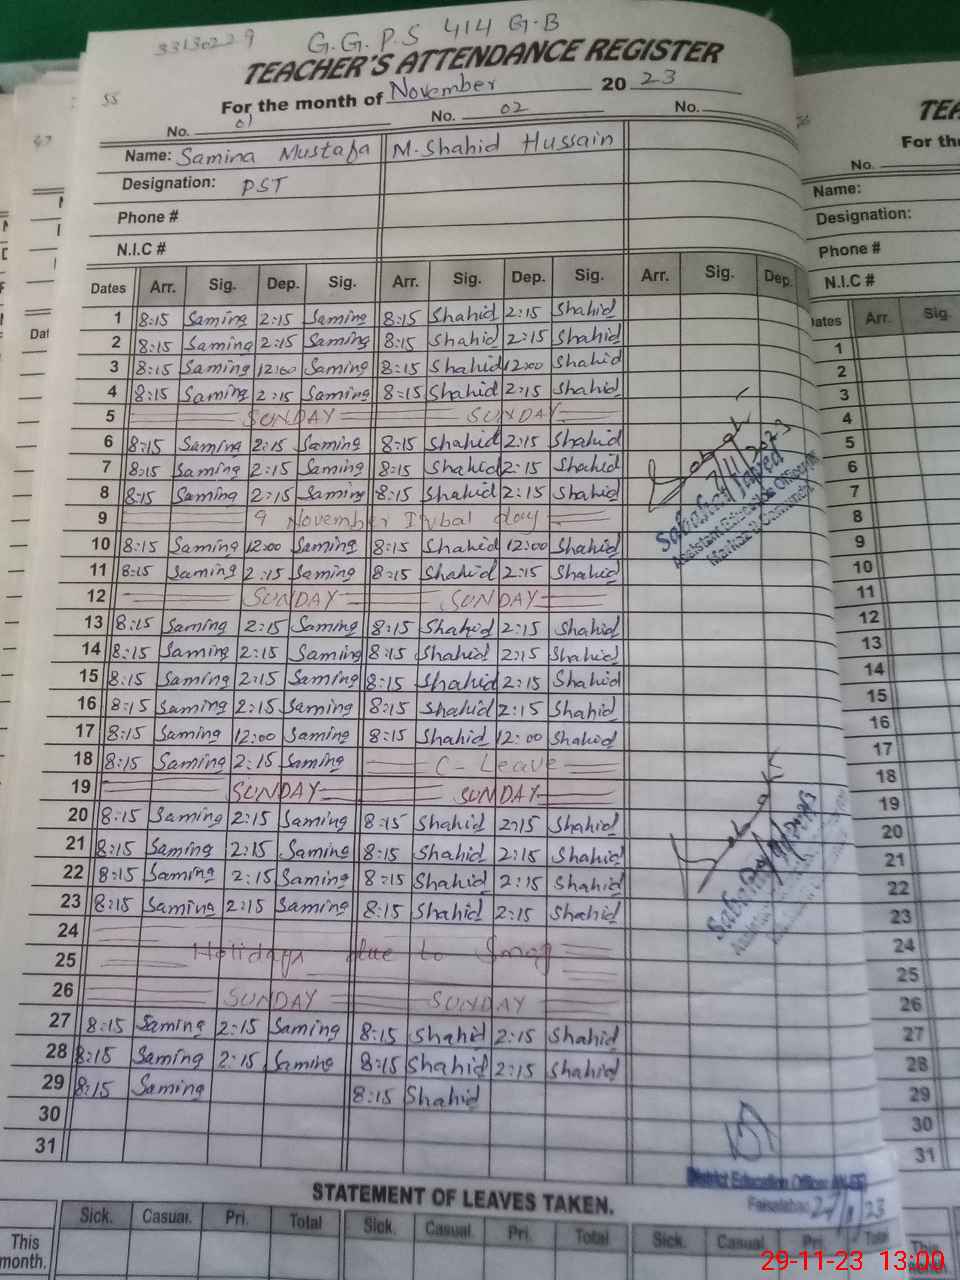 33130229 G.G.P.S 414 G-B
TEACHER'S ATTENDANCE REGISTER
55 For the month of November 2023
No. 01 No. 02 No.
Name: Samina Mustafa M. Shahid Hussain
Designation: PST
Phone #
N.I.C #
Dates Arr. Sig. Dep. Sig. Arr. Sig. Dep. Sig. Arr. Sig. Dep.
1 8:15 Samina 2:15 Samina 8:15 Shahid 2:15 Shahid
2 8:15 Samina 2:15 Samina 8:15 Shahid 2:15 Shahid
3 8:15 Samina 12:00 Samina 8:15 Shahid 12:00 Shahid
4 8:15 Samina 2:15 Samina 8:15 Shahid 2:15 Shahid
5 SUNDAY SUNDAY
6 8:15 Samina 2:15 Samina 8:15 Shahid 2:15 Shahid
7 8:15 Samina 2:15 Samina 8:15 Shahid 2:15 Shahid
8 8:15 Samina 2:15 Samina 8:15 Shahid 2:15 Shahid
9 9 November Iqbal day
10 8:15 Samina 12:00 Samina 8:15 Shahid 12:00 Shahid
11 8:15 Samina 2:15 Samina 8:15 Shahid 2:15 Shahid
12 SUNDAY SUNDAY
13 8:15 Samina 2:15 Samina 8:15 Shahid 2:15 Shahid
14 8:15 Samina 2:15 Samina 8:15 Shahid 2:15 Shahid
15 8:15 Samina 2:15 Samina 8:15 Shahid 2:15 Shahid
16 8:15 Samina 2:15 Samina 8:15 Shahid 2:15 Shahid
17 8:15 Samina 12:00 Samina 8:15 Shahid 12:00 Shahid
18 8:15 Samina 2:15 Samina C-Leave
19 SUNDAY SUNDAY
20 8:15 Samina 2:15 Samina 8:15 Shahid 2:15 Shahid
21 8:15 Samina 2:15 Samina 8:15 Shahid 2:15 Shahid
22 8:15 Samina 2:15 Samina 8:15 Shahid 2:15 Shahid
23 8:15 Samina 2:15 Samina 8:15 Shahid 2:15 Shahid
24
25 Holidays due to Smog
26 SUNDAY SUNDAY
27 8:15 Samina 2:15 Samina 8:15 Shahid 2:15 Shahid
28 8:15 Samina 2:15 Samina 8:15 Shahid 2:15 Shahid
29 8:15 Samina 8:15 Shahid
30
31
7/11/2023
Assistant Education Officer
District Education Officer
Faisalabad
STATEMENT OF LEAVES TAKEN.
Sick. Casual. Pri. Total Sick. Casual. Pri. Total Sick. Casual. Pri. Total
This month.
TEA
For the
No.
Name:
Designation:
Phone #
N.I.C #
Dates Arr. Sig.
1
2
3
4
5
6
7
8
9
10
11
12
13
14
15
16
17
18
19
20
21
22
23
24
25
26
27
28
29
30
31
This month.
29-11-23 13:00